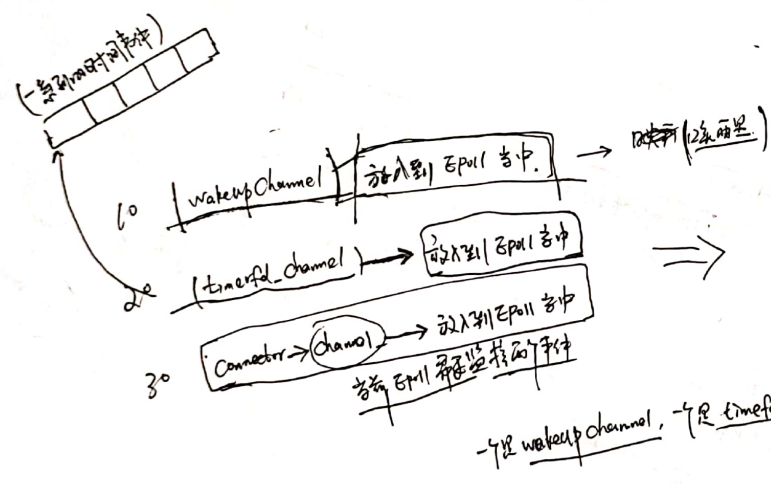 (一系列的时间事件)
1° wakeupChannel 放入到 Epoll 当中. → (12系 而是)
2° (timerfd_channel) → 放入到 Epoll 当中 ⇒
3° Connector → channel → 放入到 Epoll 当中
当前 Epoll 监 的 个事件
一个是 wakeup channel, 一个是 timerf